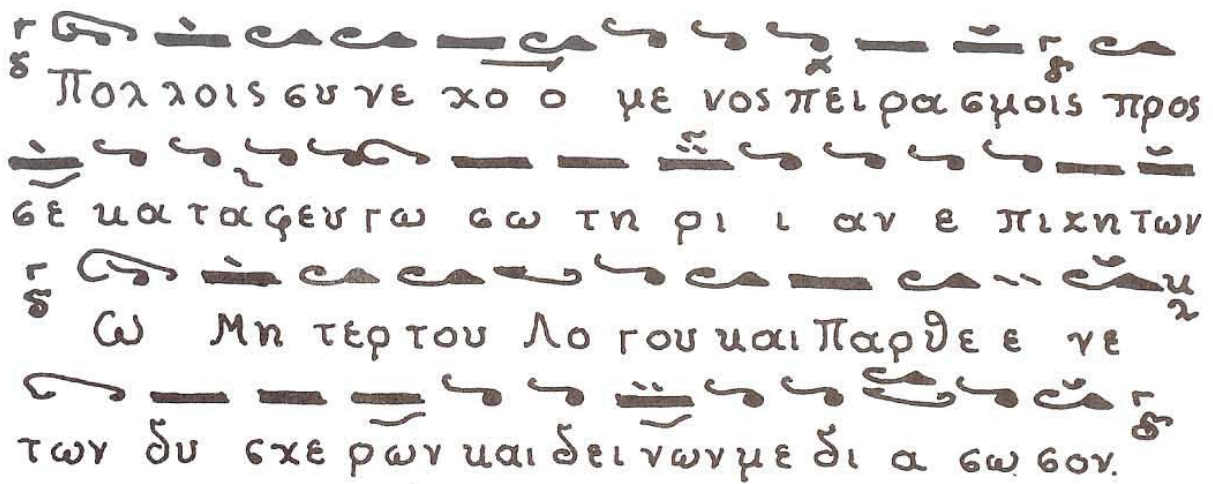 Πολ λοις συ νε χο ο με νος πει ρα σμοις προς
σε κα τα φευ γω σω τη ρι ι αν ε πι ζη των
Ω Μη τερ του Λο γου και Παρ θε ε νε
των δυ σχε ρων και δει νων με δι α σω σον.